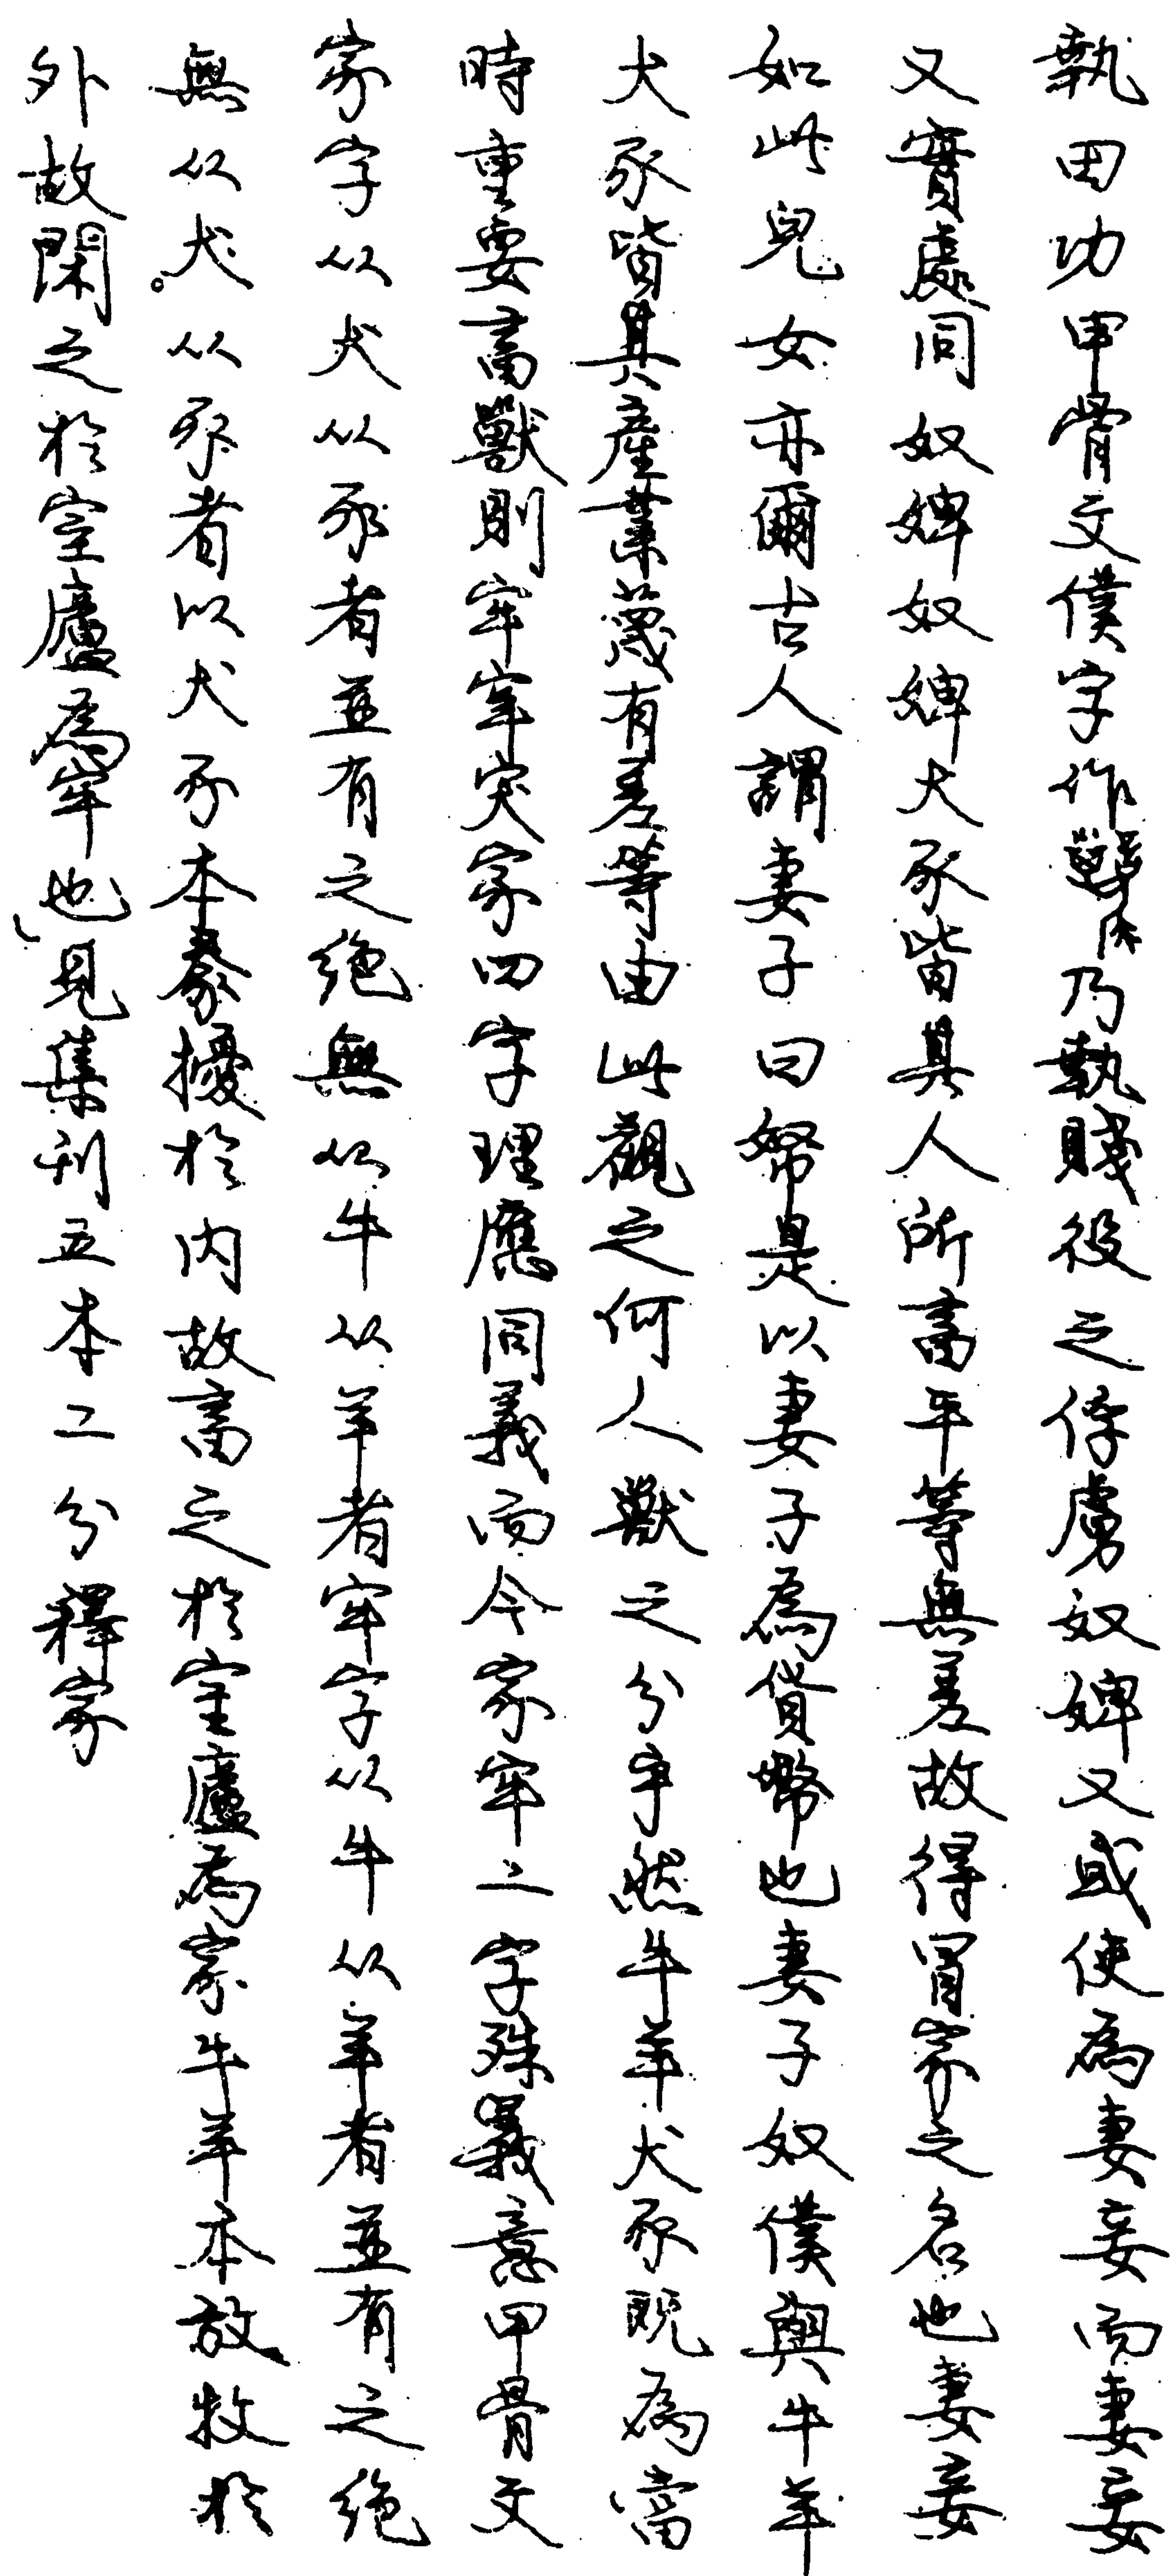 執田功甲骨文僕字作乃執賤役之俘虜奴婢又或使為妻妾而妻妾
又實處同奴婢奴婢犬豕皆其人所畜平等無差故得冒家之名也妻妾
如此兒女亦爾古人謂妻子曰帑是以妻子為貨幣也妻子奴僕與牛羊
犬豕皆其產業蔑有差等由此觀之何人獸之分乎然牛羊犬豕既為當
時重要畜獸則牢宰突家四字理應同義而今家牢二字殊異意甲骨文
家字从犬从豕者並有之絶無从牛从羊者牢字从牛从羊者並有之絶
無从犬。从豕者以犬豕本豢擾於內故畜之於室廬為家牛羊本放牧於
外故閑之於室廬為牢也見集刊五本二分釋家